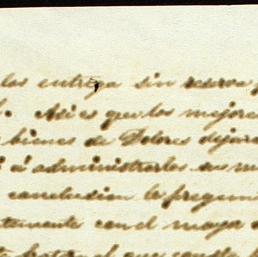 los entrega sin reserva
Asi es que los mejores
bienes de Dolores dejara
á administrarlos su
conclusion le pregun
tamente con el mayor
que